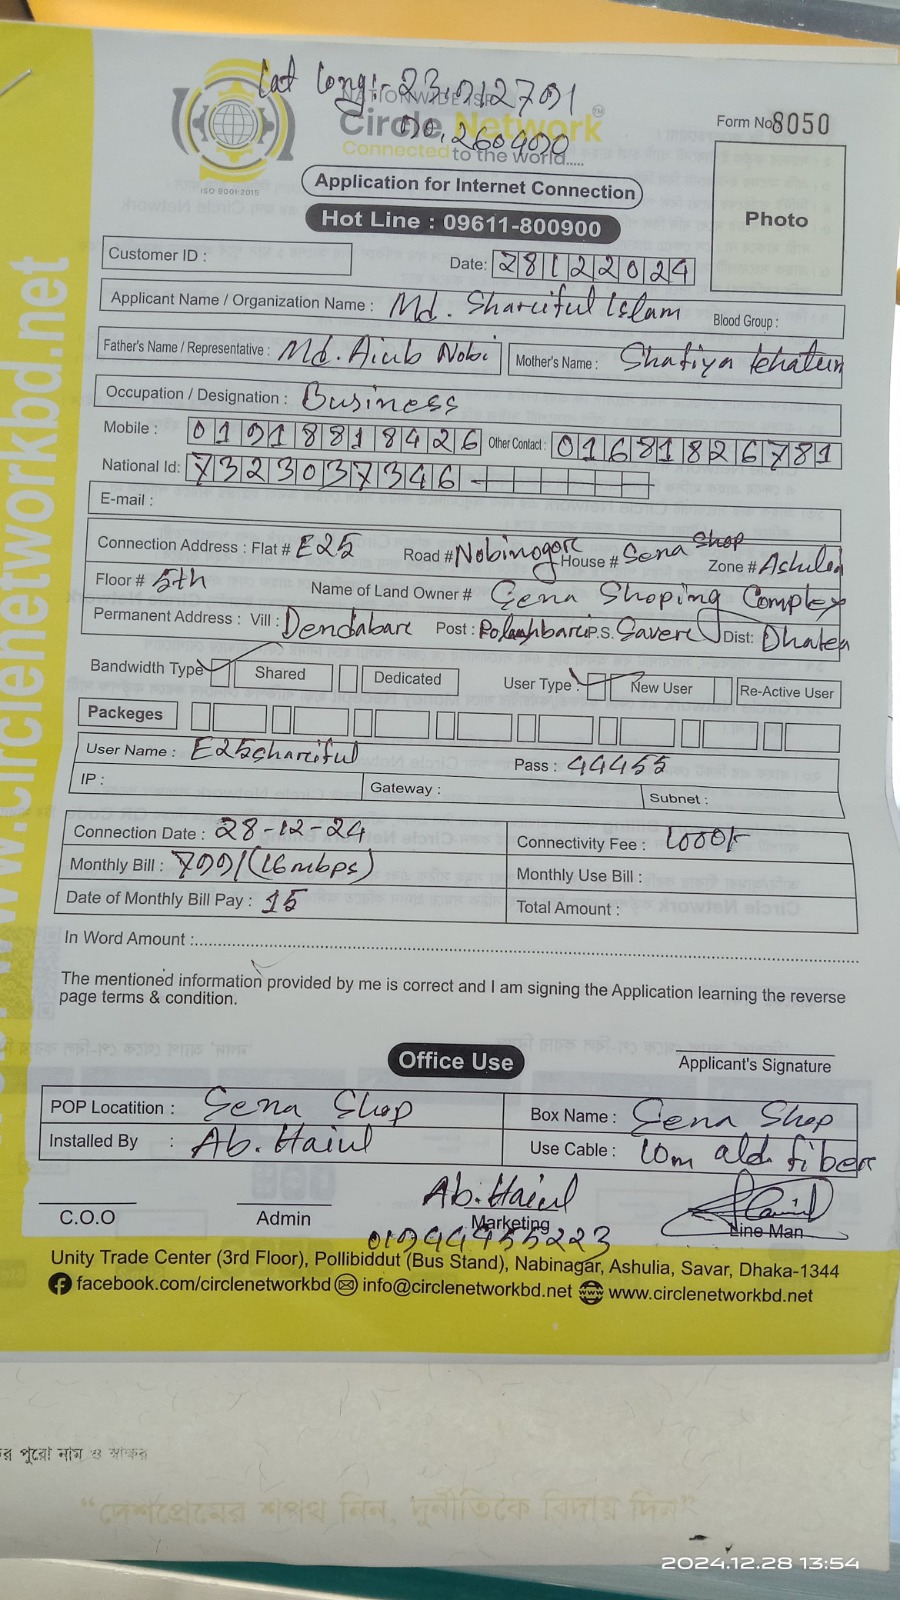 Lat Long:-
NATIONWIDE ISP
Circle Network
Connected to the world.....
ISO 9001:2015
Form No 8050
Photo
Application for Internet Connection
Hot Line : 09611-800900
Customer ID :
Date: 28122024
Applicant Name / Organization Name : Md. Shariful Islam Blood Group :
Father's Name / Representative : Md. Aiub Nobi Mother's Name : Shafiya Khatun
Occupation / Designation : Business
Mobile : 01918818426 Other Contact : 01681826781
National Id: 7323037346
E-mail :
Connection Address : Flat # E25 Road # Nobinogor House # Sena Shop Zone # Ashulia
Floor # 5th Name of Land Owner # Sena Shoping Complex
Permanent Address : Vill : Dendabar Post : P.S. Saver Dist: Dhaka
Bandwidth Type Shared Dedicated User Type : New User Re-Active User
Packeges
User Name : E25shariful Pass : 44455
IP : Gateway : Subnet :
Connection Date : 28-12-24 Connectivity Fee : 1000/-
Monthly Bill : 799/(16mbps) Monthly Use Bill :
Date of Monthly Bill Pay : 15 Total Amount :
In Word Amount :
The mentioned information provided by me is correct and I am signing the Application learning the reverse
page terms & condition.
Office Use
Applicant's Signature
POP Locatition : Sena Shop Box Name : Sena Shop
Installed By : Ab. Haiul Use Cable : 10m old fiber
Ab. Haiul
C.O.O Admin Marketing Line Man
01944455223
Unity Trade Center (3rd Floor), Pollibiddut (Bus Stand), Nabinagar, Ashulia, Savar, Dhaka-1344
facebook.com/circlenetworkbd info@circlenetworkbd.net www.circlenetworkbd.net
www.circlenetworkbd.net
পুরো নাম ও স্বাক্ষর
“দেশপ্রেমের শপথ নিন, দুর্নীতিকে বিদায় দিন”
2024.12.28 13:54